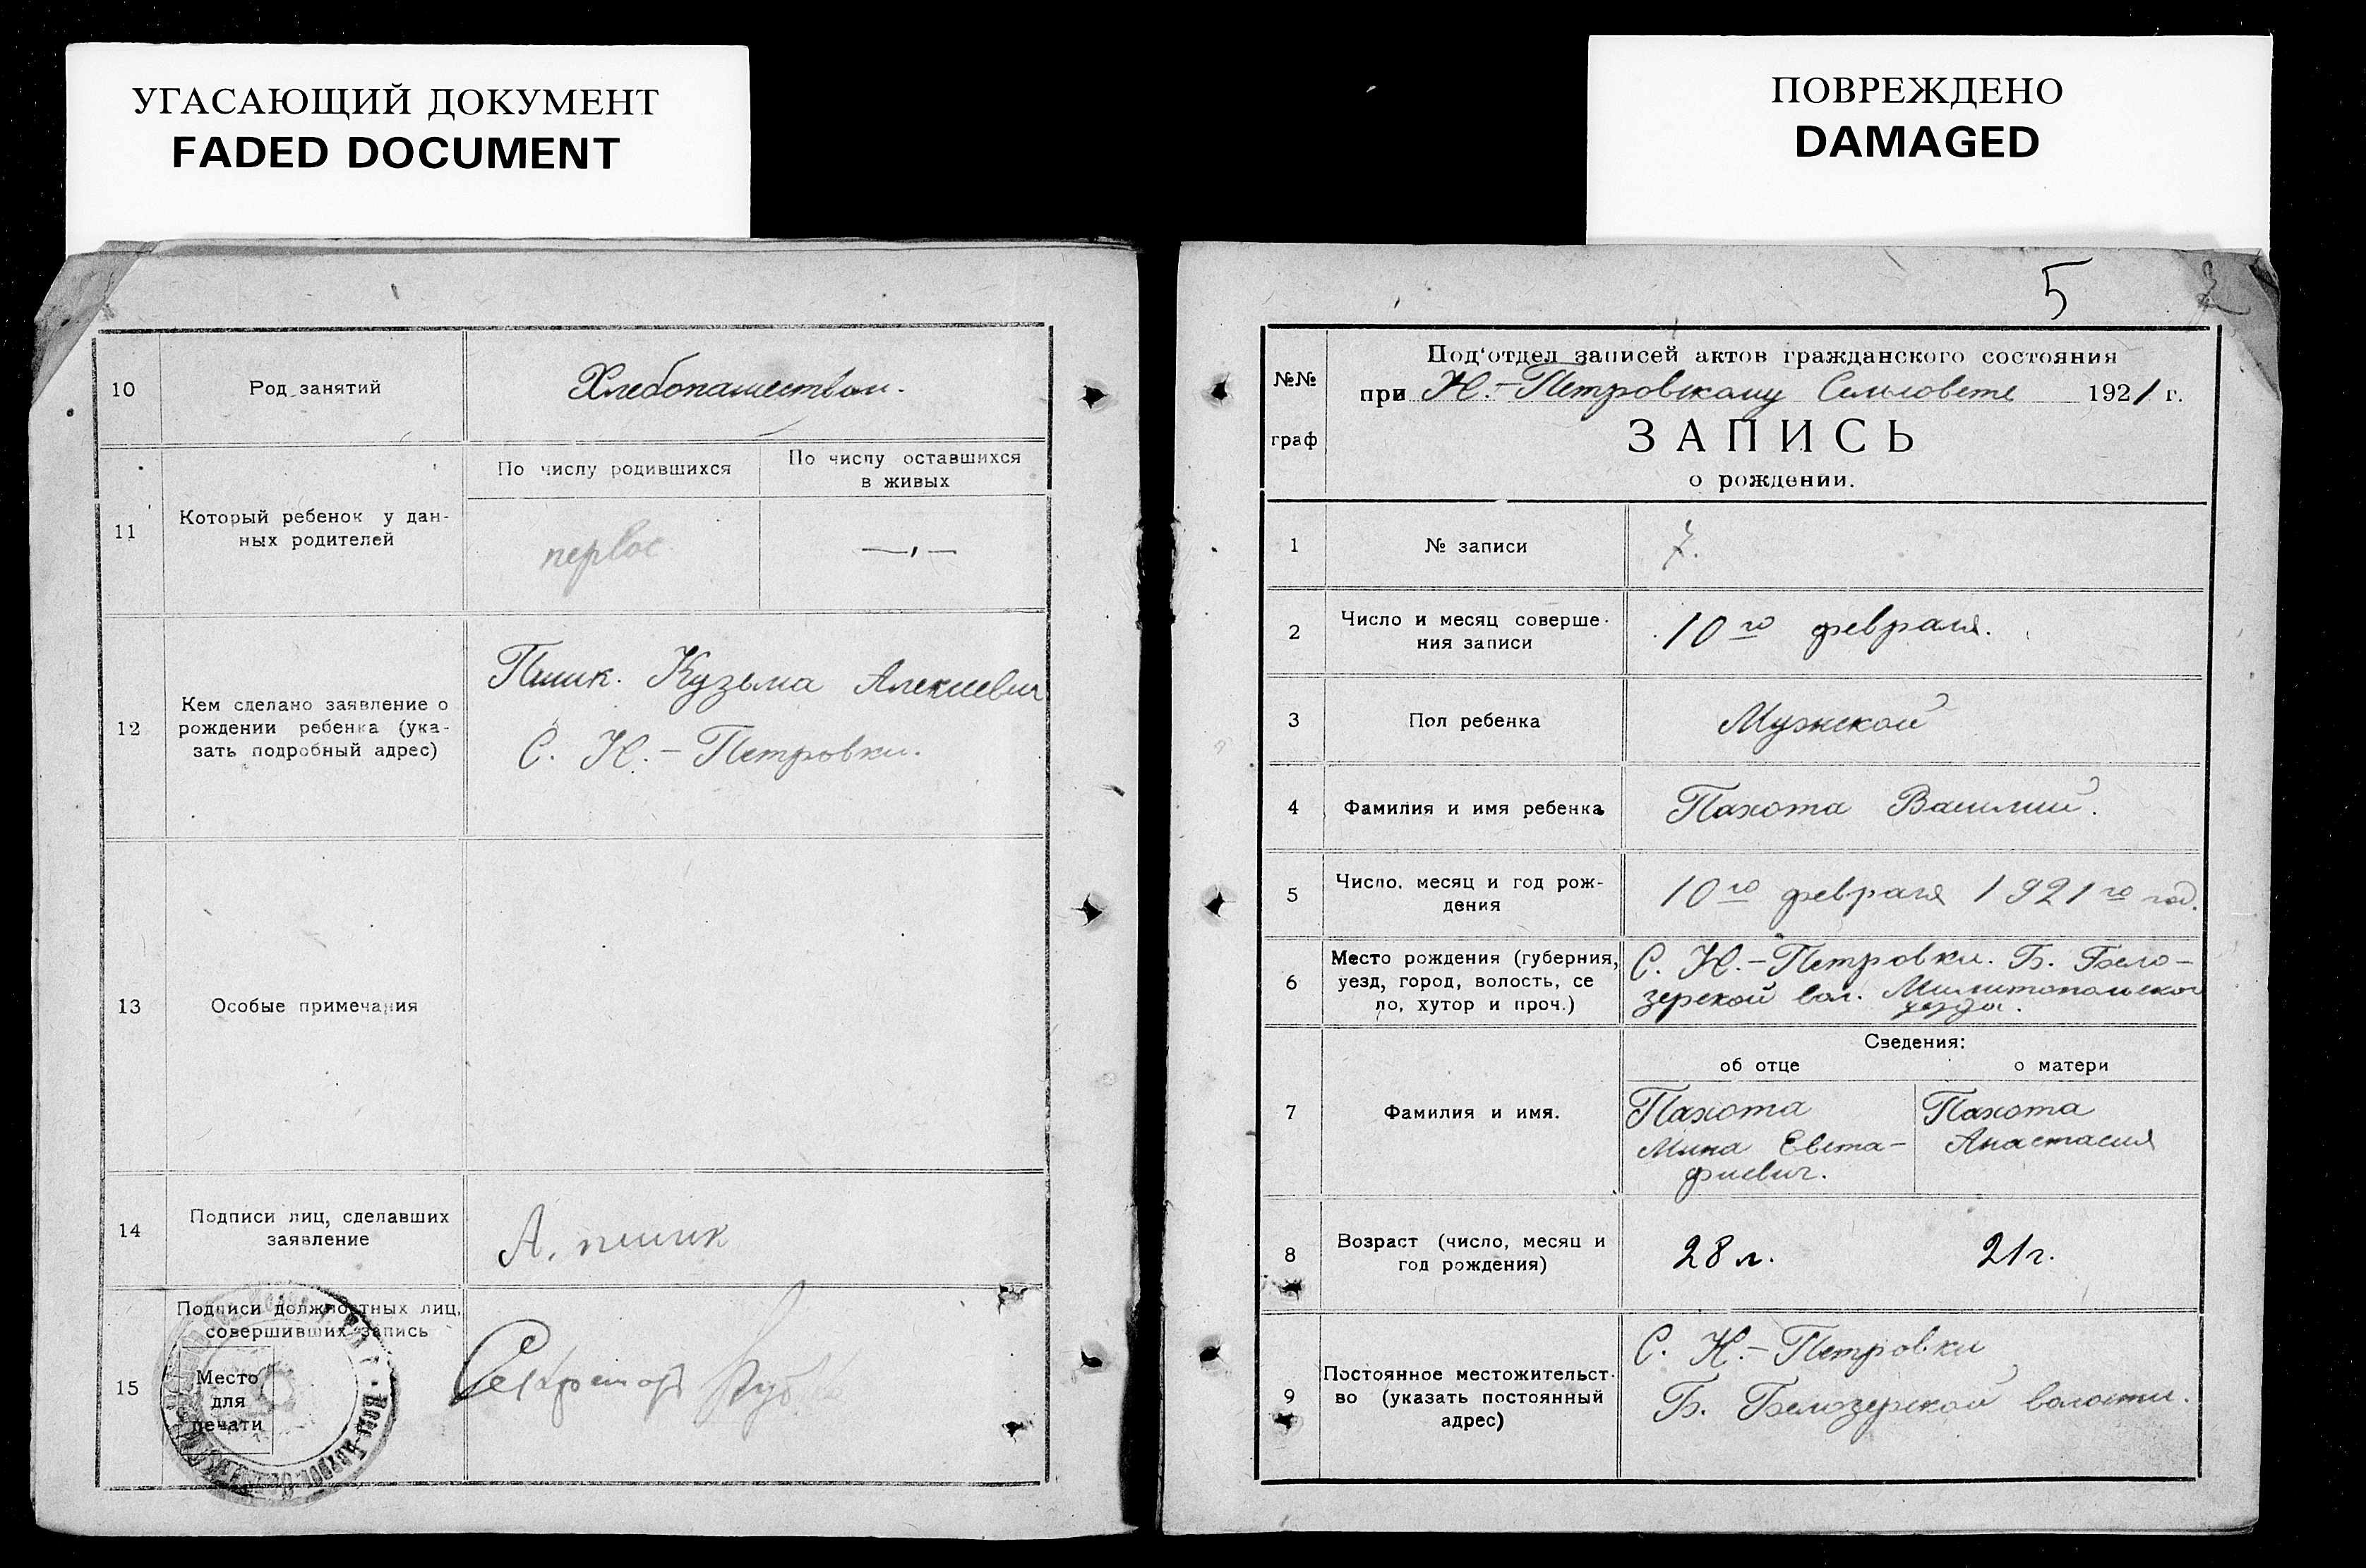 УГАСАЮЩИЙ ДОКУМЕНТ
FADED DOCUMENT
ПОВРЕЖДЕНО
DAMAGED
10
Род занятий
Хлебопашеством.
11
Который ребенок у дан-
ных родителей
По числу родившихся
первое
По числу оставшихся
в живых
—„—
12
Кем сделано заявление о
рождении ребенка (ука-
зать подробный адрес)
Пшик. Кузьма Алексеевич
С. Н.-Петровки.
13
Особые примечания
14
Подписи лиц, сделавших
заявление
А. пшик
15
Подписи должностных лиц,
совершивших запись
Место
для
печати
Секретарь
5
7
№№
граф
Под'отдел записей актов гражданского состояния
при Н.-Петровскому Сельсовете 1921 г.
ЗАПИСЬ
о рождении.
1
№ записи
7.
2
Число и месяц соверше-
ния записи
10го февраля.
3
Пол ребенка
Мужской
4
Фамилия и имя ребенка
Пахота Василий.
5
Число, месяц и год рож-
дения
10го февраля 1921го год.
6
Место рождения (губерния,
уезд, город, волость, се
ло, хутор и проч.)
С. Н.-Петровки. Б. Бело-
зерской вол. Милитопольско
уезда.
7
Фамилия и имя.
Сведения:
об отце
о матери
Пахота
Мина Евста-
фиевич.
Пахота
Анастасия
8
Возраст (число, месяц и
год рождения)
28 л.
21 г.
9
Постоянное местожительст-
во (указать постоянный
адрес)
С. Н.-Петровки
Б. Белозерской волости.